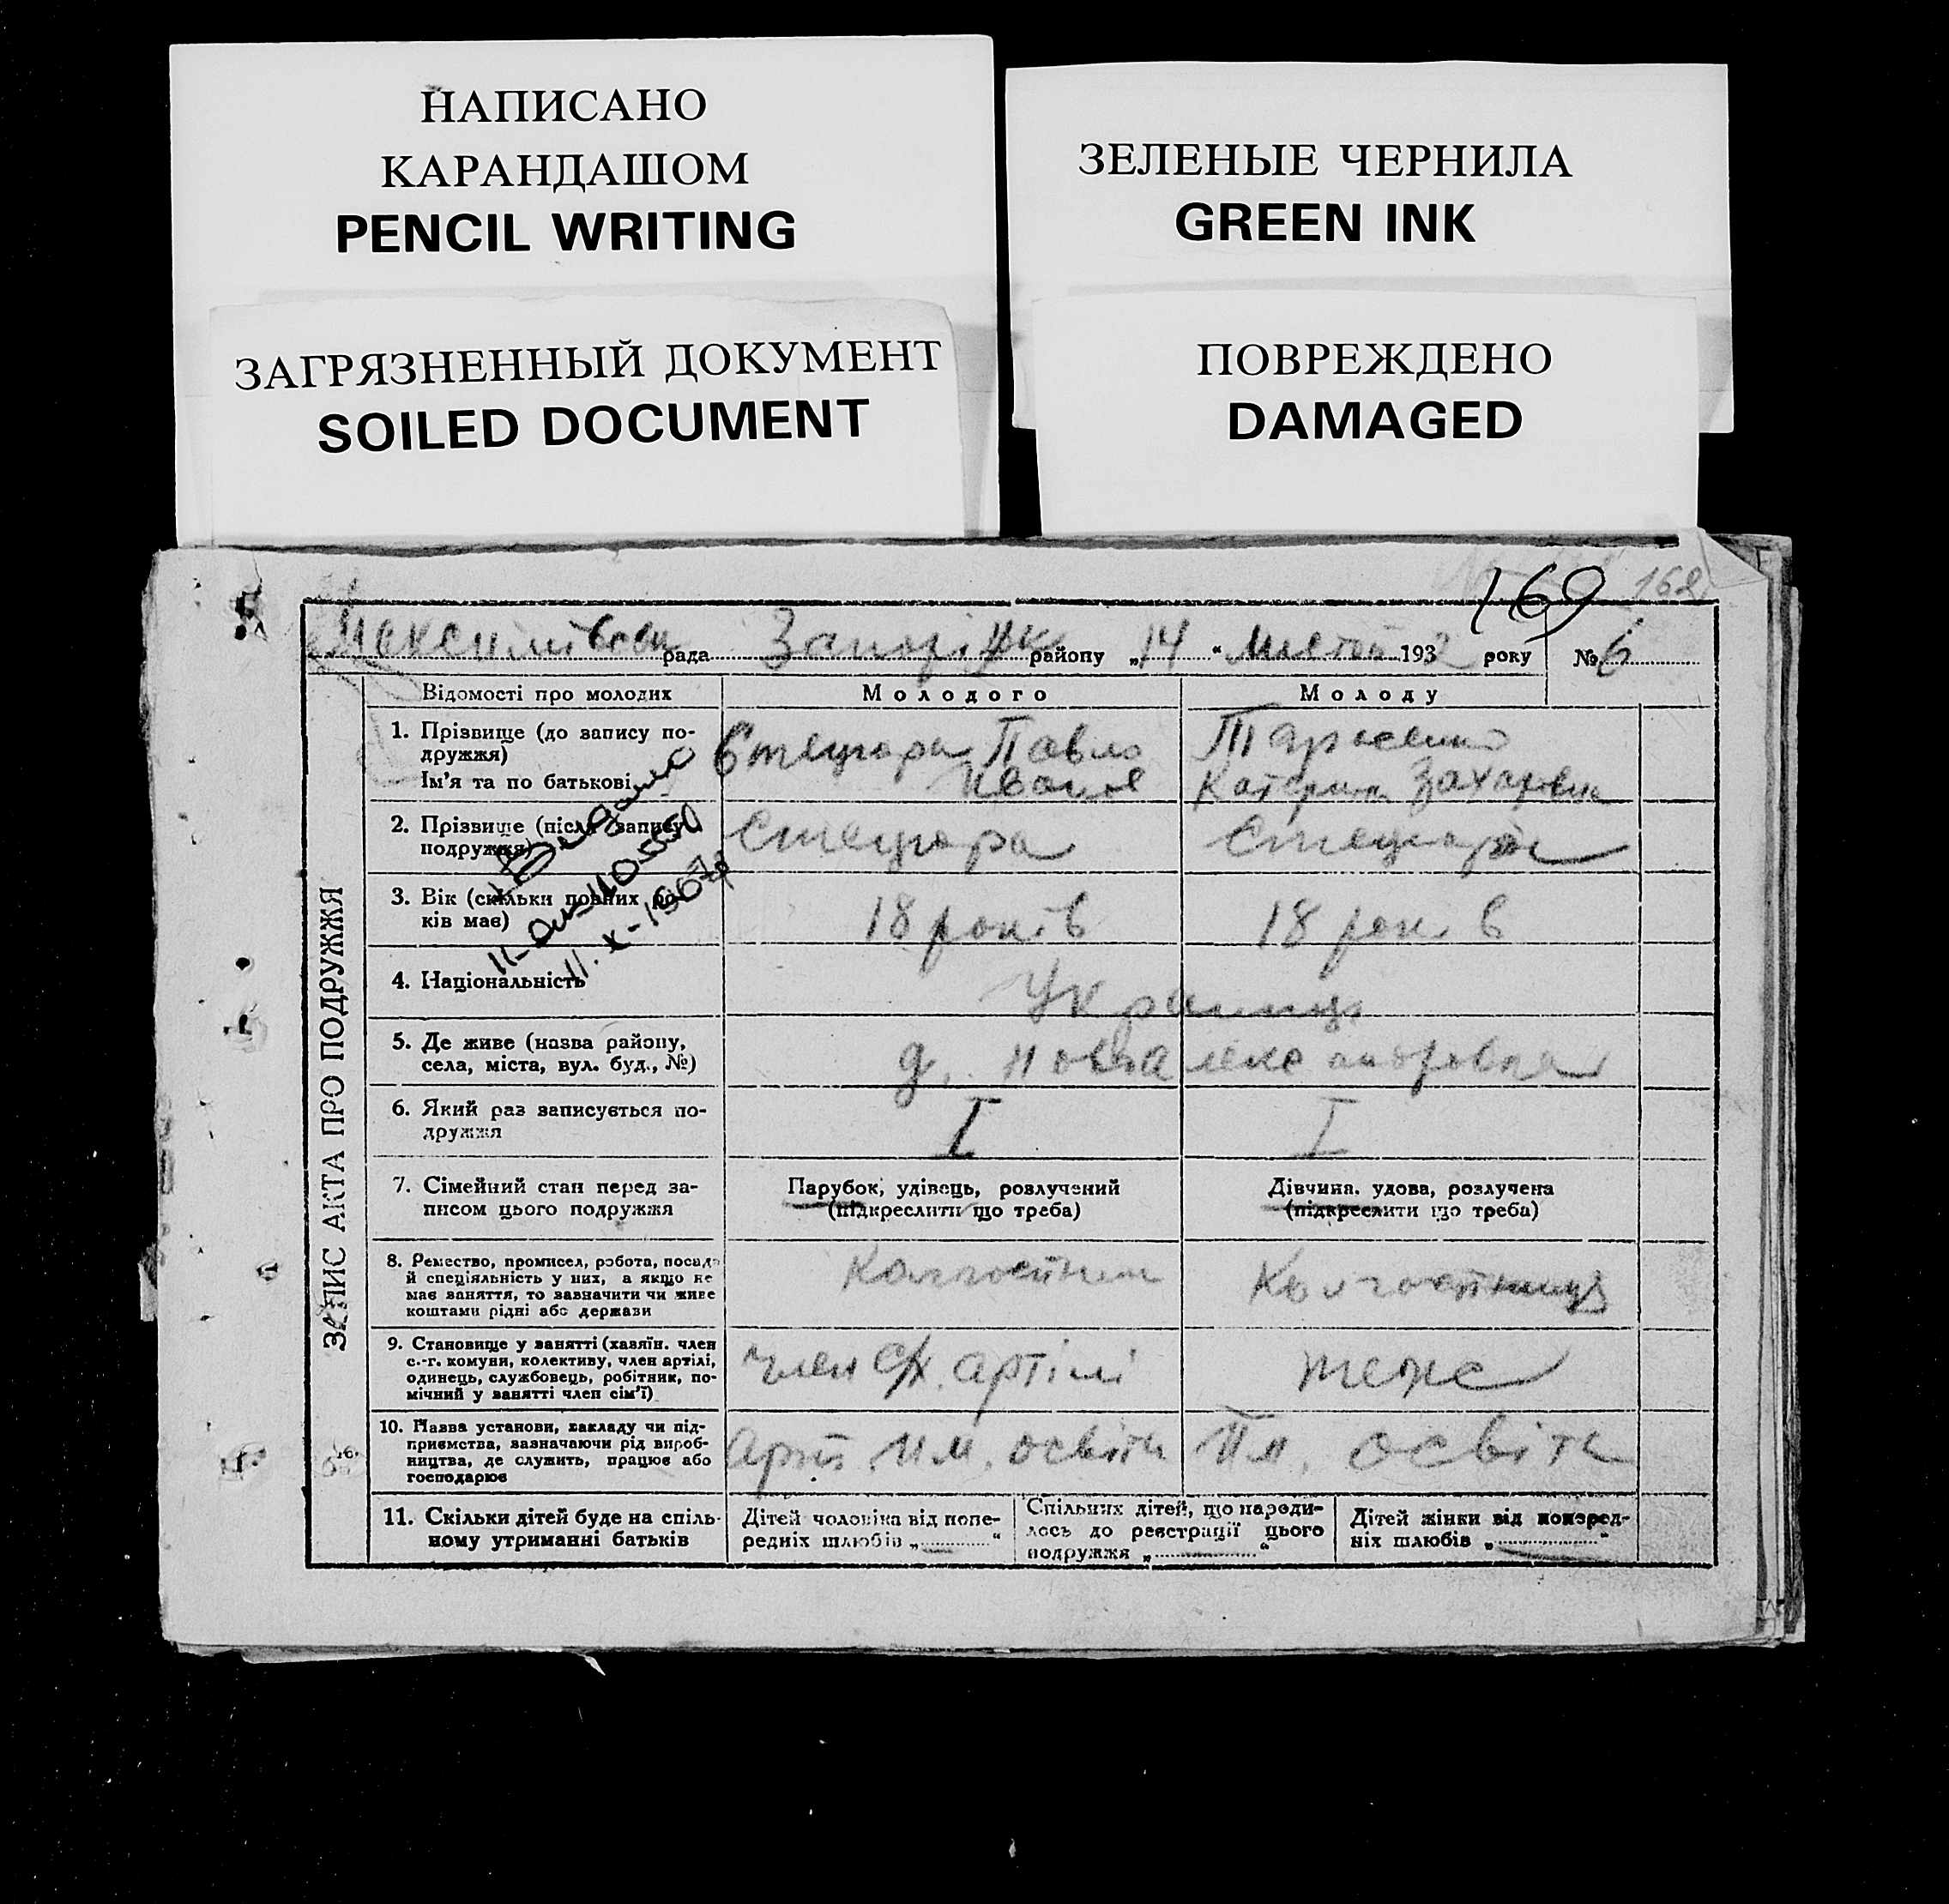 НАПИСАНО
КАРАНДАШОМ
PENCIL WRITING
ЗЕЛЕНЫЕ ЧЕРНИЛА
GREEN INK
ЗАГРЯЗНЕННЫЙ ДОКУМЕНТ
SOILED DOCUMENT
ПОВРЕЖДЕНО
DAMAGED
169 162
рада району „14“ 1932 року № 6
ЗАПИС АКТА ПРО ПОДРУЖЖЯ
Відомості про молодих Молодого Молоду
1. Прізвище (до запису по-
дружжя)
Ім'я та по батькові
Павло
Катерина Захаровна
2. Прізвище (після запису
подружжя)
3. Вік (скільки повних ро-
ків має)
18 років 18 років
11.X-1967р
4. Національність
5. Де живе (назва району,
села, міста, вул. буд., №)
6. Який раз записується по-
дружжя
I I
7. Сімейний стан перед за-
писом цього подружжя
Парубок, удівець, розлучений
(підкреслити що треба)
Дівчина. удова, розлучена
(підкреслити що треба)
8. Ремество, промисел, робота, посада
й спеціяльність у них, а якщо не
має заняття, то зазначити чи живе
коштами рідні або держави
Колгоспник Колгоспниця
9. Становище у занятті (хазяїн. член
с.-г. комуни, колективу, член артілі,
одинець, службовець, робітник, по-
мічний у занятті член сім'ї)
член с/х. артілі теже
10. Назва установи, закладу чи під-
приємства, зазначаючи рід вироб-
ництва, де служить, працює або
господарює
арт. им. освіти им. освіти
11. Скільки дітей буде на спіль-
ному утриманні батьків
Дітей чоловіка від попе-
редніх шлюбів „ “
Спільних дітей, що народи-
лось до реєстрації цього
подружжя „ “
Дітей жінки від поперед-
ніх шлюбів „ “